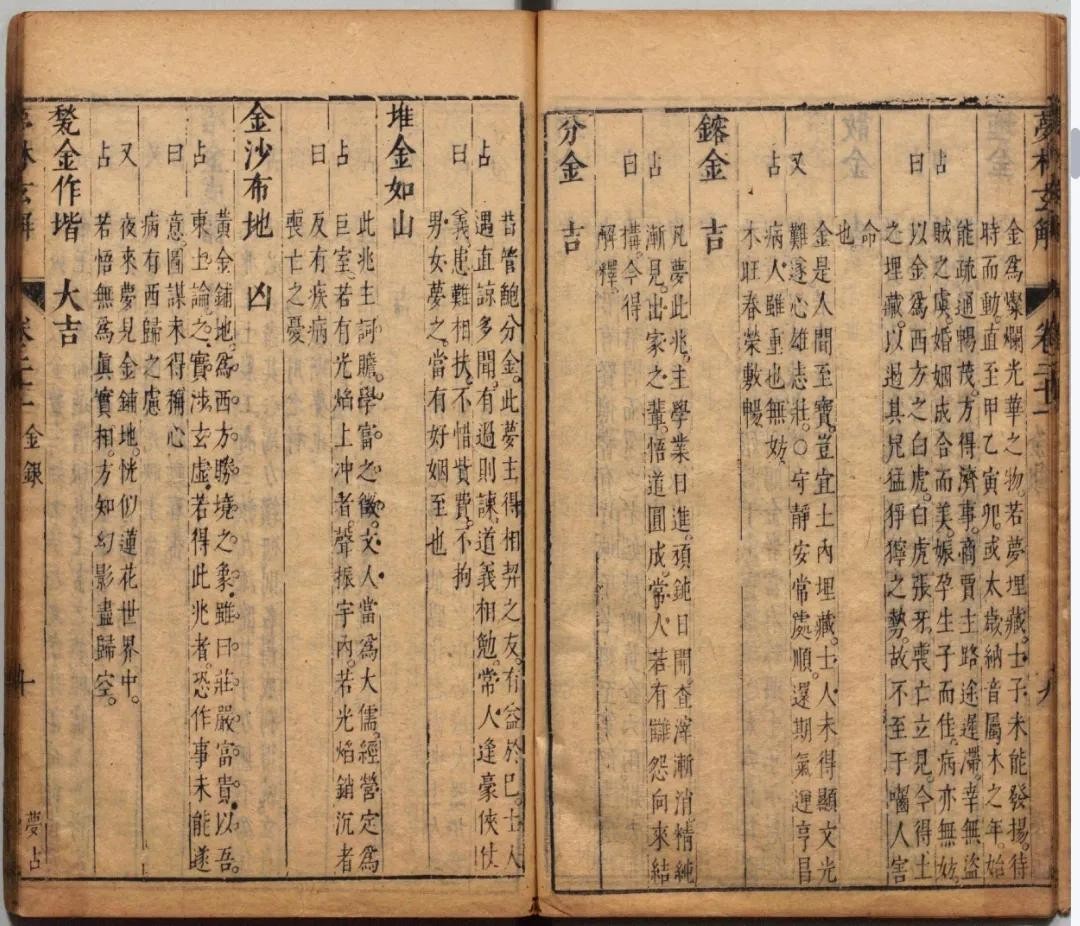 夢林玄解 卷三十一 九
金爲燦爛光華之物。若夢埋藏。士子未能發揚。待
時而動。直至甲乙寅卯。或太歲納音屬木之年。始
能疏通暢茂。方得濟事。商賈主路途遲滯。幸無盜
占 賊之虞。婚姻成合而美。娠孕生子而佳。病亦無妨。
曰 以金爲西方之白虎。白虎張牙。喪亡立見。今得土
之埋藏。以過其兇猛猙獰之勢。故不至于囓人害
命
也
金是人間至寶。豈宜土內埋藏。士人未得顯文光
又 難遂心雄志壯。○守靜安常處順。還期氣運亨昌
占 病人雖重也無妨。
木旺春榮敷暢
鎔金 吉
凡夢此兆。主學業日進。頑鈍日開。查滓漸消。精純
占 漸見。出家之輩。悟道圓成。常人若有讎怨向來結
曰 構。今得
解釋。
分金 吉
昔管鮑分金。此夢主得相契之友。有益於己。士人
占 遇直諒多聞。有過則諫。道義相勉。常人逢豪俠仗
曰 義。患難相扶。不惜貲費。不拘
男女夢之。當有好姻至也
堆金如山
此兆主詞贍學富之徵。文人當爲大儒。經營定爲
占 巨室。若有光焰上冲者。聲振宇內。若光焰銷沉者
曰 反有疾病
喪亡之憂
金沙布地 凶
黃金鋪地。爲西方聯境之象。雖曰莊嚴富貴。以吾
占 東土論之。實涉玄虛。若得此兆者。恐作事未能遂
曰 意。圖謀未得稱心
病有西歸之慮
又 夜來夢見金鋪地。恍似蓮花世界中。
占 若悟無爲眞實相。方知幻影盡歸空。
甃金作堦 大吉
夢林玄解 金銀 十 夢占